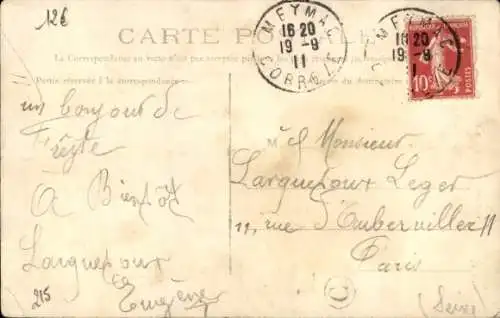 12€
CARTE POSTALE
La Correspondance au recto n'est pas acceptée par
Partie réservée à la correspondance
MEYMAC
16 20
19 - 9
11
CORRÈZE
MEYMAC
16 20
19 - 9
11
10c
POSTES
un bonjour de
à Bientôt
Larguetoux
Eugène
215
M
Monsieur
Larguetoux Leger
11, rue d'Aubervilliers 11
Paris
C
(Seine)